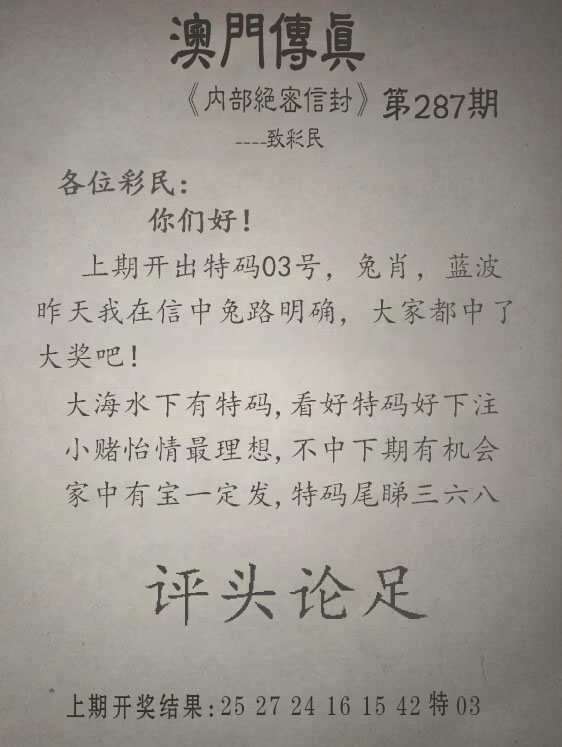 澳門傳眞
《内部絕密信封》第287期
----致彩民
各位彩民：
你们好！
上期开出特码03号，兔肖，蓝波
昨天我在信中兔路明确，大家都中了
大奖吧！
大海水下有特码,看好特码好下注
小赌怡情最理想,不中下期有机会
家中有宝一定发,特码尾睇三六八
评头论足
上期开奖结果:25 27 24 16 15 42 特 03